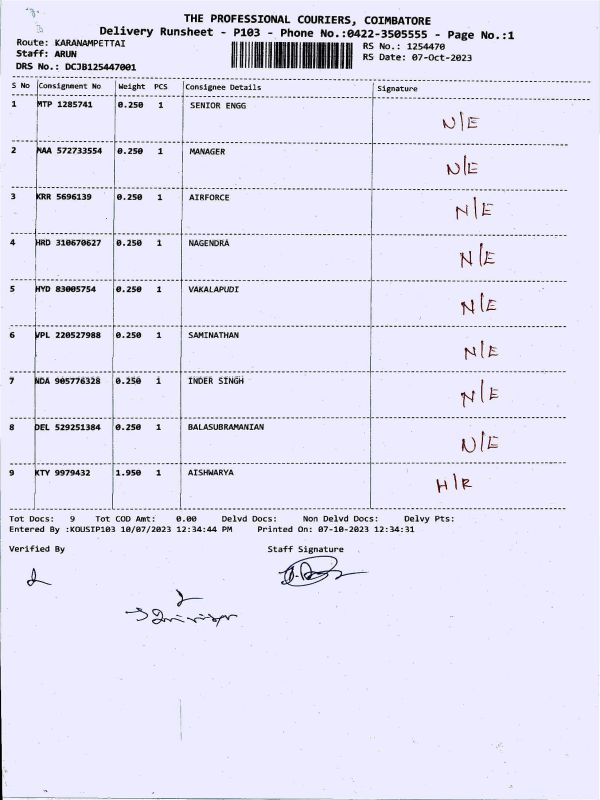 THE PROFESSIONAL COURIERS, COIMBATORE
Delivery Runsheet - P103 - Phone No.:0422-3505555 - Page No.:1
Route: KARANAMPETTAI
RS No.: 1254470
Staff: ARUN
RS Date: 07-Oct-2023
DRS No.: DCJB125447001
S No Consignment No Weight PCS Consignee Details Signature
1 MTP 1285741 0.250 1 SENIOR ENGG N/E
2 MAA 572733554 0.250 1 MANAGER N/E
3 KRR 5696139 0.250 1 AIRFORCE N/E
4 HRD 310670627 0.250 1 NAGENDRA N/E
5 HYD 83005754 0.250 1 VAKALAPUDI N/E
6 VPL 220527988 0.250 1 SAMINATHAN N/E
7 NDA 905776328 0.250 1 INDER SINGH N/E
8 DEL 529251384 0.250 1 BALASUBRAMANIAN N/E
9 KTY 9979432 1.950 1 AISHWARYA H/R
Tot Docs: 9 Tot COD Amt: 0.00 Delvd Docs: Non Delvd Docs: Delvy Pts:
Entered By :KOUSIP103 10/07/2023 12:34:44 PM Printed On: 07-10-2023 12:34:31
Verified By Staff Signature